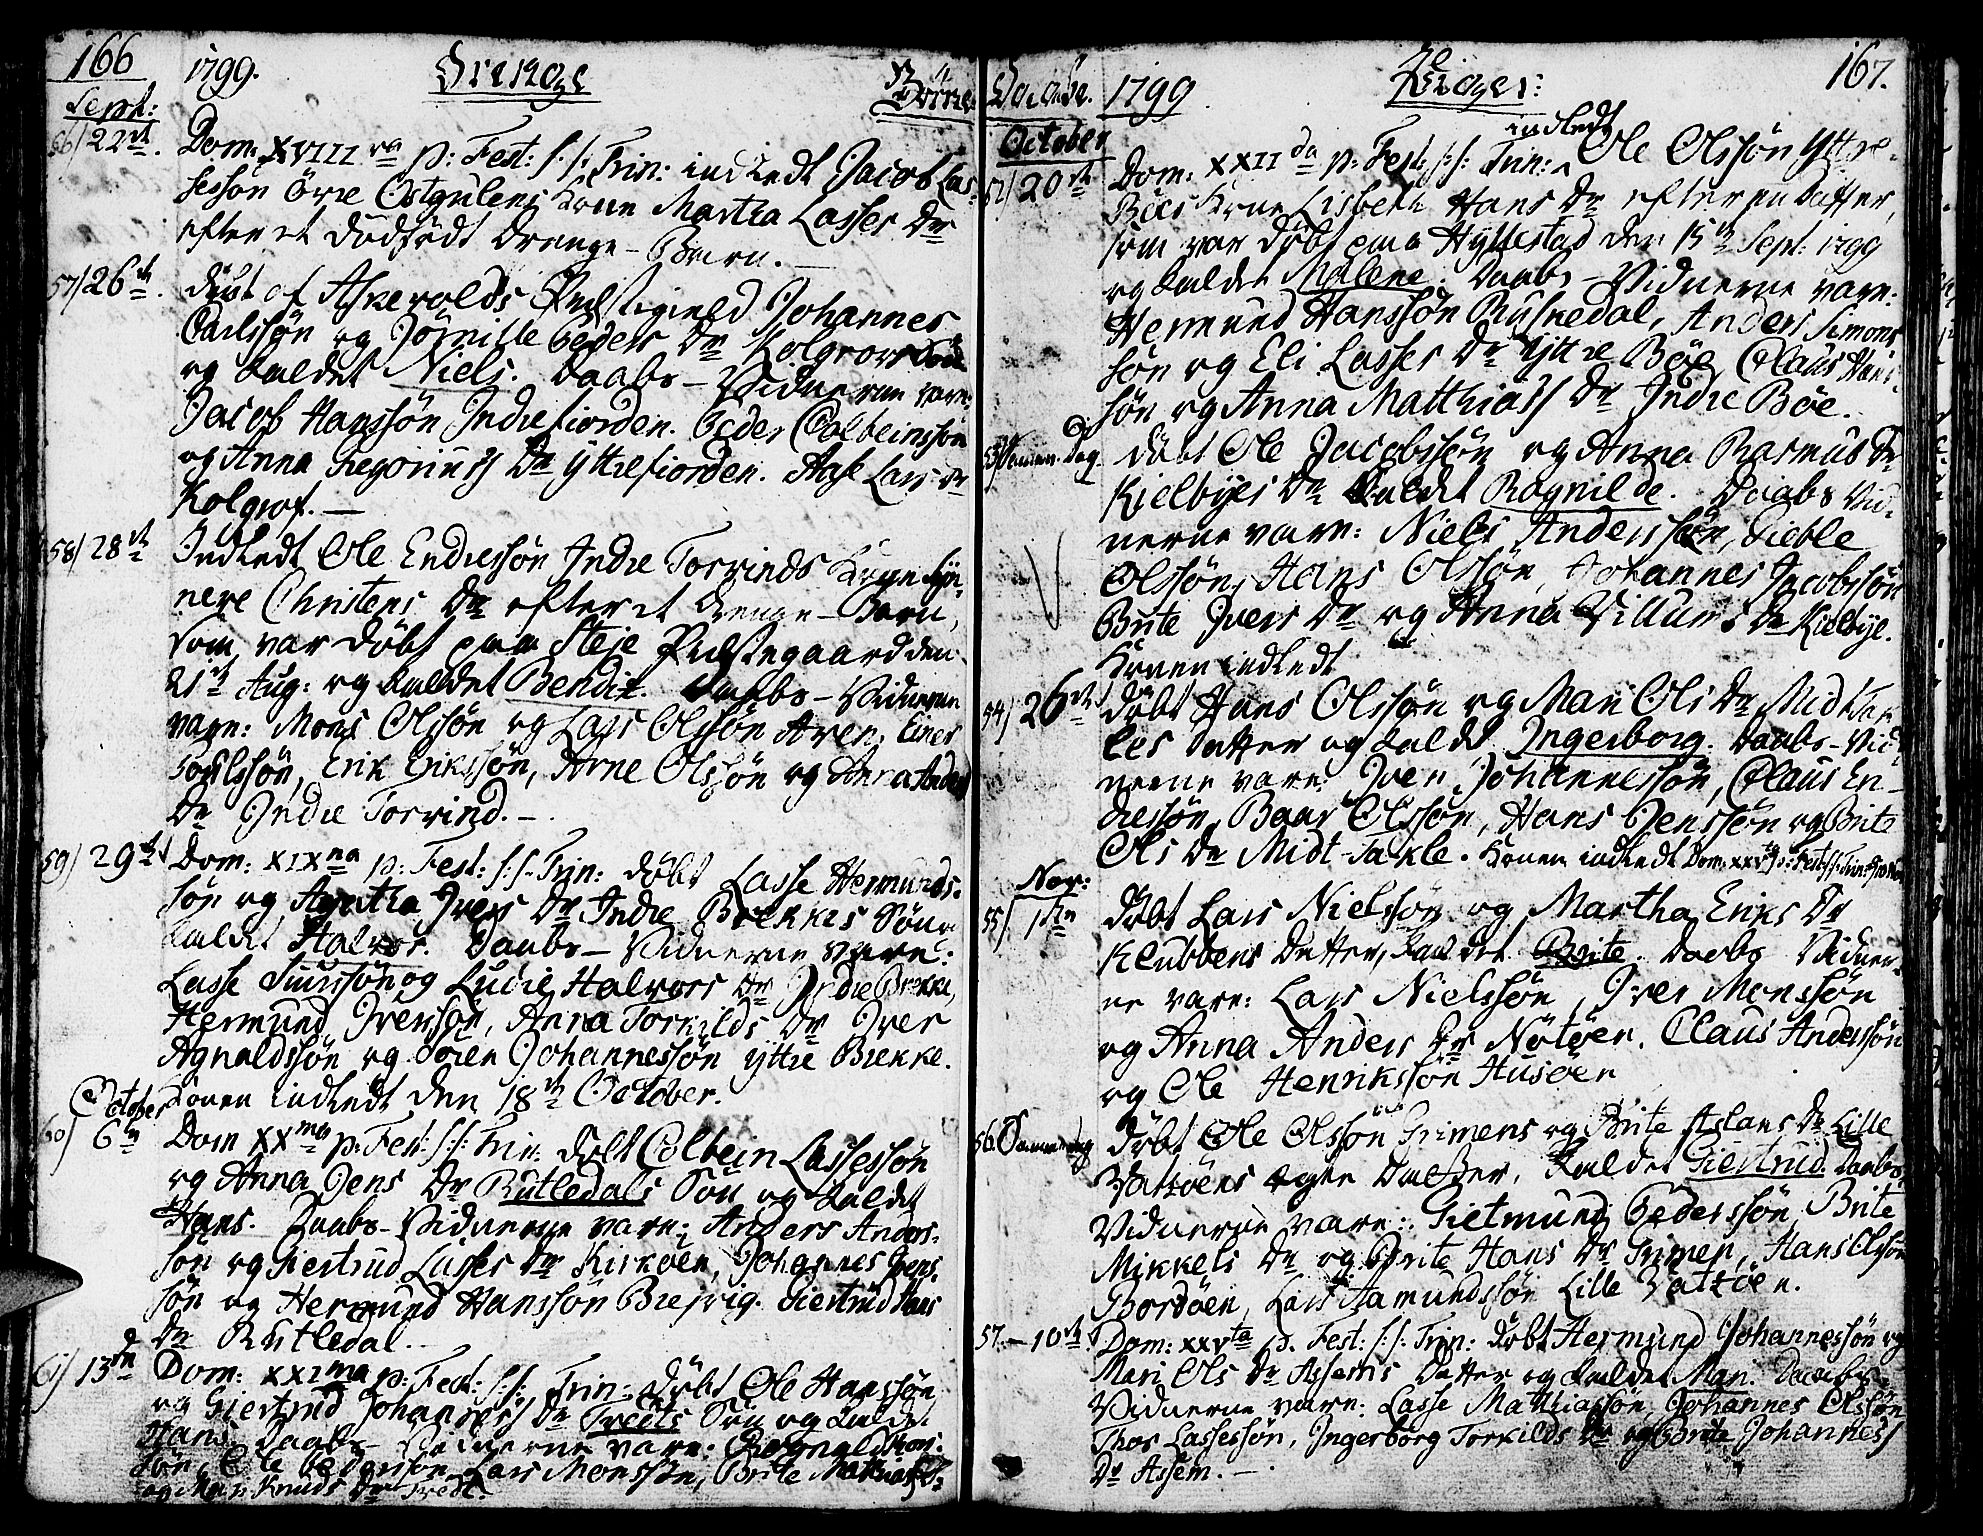 166 1799. Drenge Börne
Sept:
56) 22de. Dom: XVIII va p: Fest: S: S: Trin: indledt Jacob Las-
sessön Örre Ostgulens Kone Martha Lasses Dr
efter et dödfödt Drenge-Barn.
57) 26de. döbt af Askevolds Præstegield Johannes
Carlssön og Jörnille Peders Dr Kolgrov
og kaldet Niels. Daabs-Vidnerne vare:
Jacob Hanssön Indrefiorden. Peder Colbeinssön
og Anna Gregorius Dr Yttrefiorden. Aase Lars Dr
Kolgrof.
58) 28de Indledt Ole Endressön Indre Torvinds Kone Syn-
neve Christens Dr efter et Drenge-Barn,
som var döbt paa Steje Præstegaard den
21de Aug: og kaldet Bendix. Daabs-Vidnerne
vare: Mons Olssön og Lars Olssön Aven, Einer
Erik Erikssön, Arne Olssön og Anna Anders
Dr Indre Torvind.
59) 29de Dom: XIXna p: Fest: S: S: Trin: döbt Lasse Hermunds-
sön og Agatha Ivers Dr Indre Brekkes Sön
kaldet Halvor. Daabs-Vidnerne vare:
Lasse Siurssön og Lucie Halvors Dr Indre Brekke,
Hermund Iverssön, Anna Torkilds Dr Iver
Agnaldssön og Sören Johannessön Yttre Brekke.
Konen indledt den 18de October.
October
60) 6te Dom XXma p: Fest: S: S: Trin: döbt Colbein Lassessön
og Anna Jens Dr Rutledals Sön og kaldet
Hans. Daabs-Vidnerne vare: Anders Anders-
sön og Giertrud Lasses Dr Kirköen, Johannes Jens-
sön og Hermund Hanssön Brejvig. Giertrud Hans
Dr Rutledal.
61) 13de Dom: XXIma p: Fest: S: S: Trin: döbt Ole Hanssön
og Giertrud Johannes Dr Tredts Sön og kaldet
Hans. Daabs-Vidnerne vare: Rognald
sön, Ole Pederssön, Lars Monssön, Brite Mathias Dr
og Mari Knuds Dr Tredt.
Daabde. 1799 Piger: 167.
October
52) 20de Dom: XXII da p: Fest: S: S: Trin: indledt Ole Olssön Yttre-
Böes Kone Lisbeth Hans Dr efter en Datter,
som var döbt paa Hyllestad den 15de Sept: 1799
og kaldet Malene. Daabs-Vidnerne vare:
Hermund Hanssön Rysnedal, Anders Simons-
sön og Eli Lasses Dr Yttre Böe, Claus Hans-
sön og Anna Matthias Dr Indre Böe.
53) Samme Dag. döbt Ole Jacobssön og Anna Rasmus Dr
Kielbyes Dr kaldet Rognilde. Daabs Vid-
nerne vare: Niels Anderssön, Sieble
Olssön, Hans Olssön, Johannes Jacobssön
Brite Ivers Dr og Anna Villums Dr Kielbye.
Konen indledt
54) 26de döbt Hans Olssön og Mari Ols Dr Midt Tak-
les Datter og kaldt Ingerborg. Daabs-Vid-
nerne vare: Iver Johannessön, Claus En-
dressön, Baar Olssön, Hans Jenssön og Brite
Ols Dr Midt-Takle. Konen indledt Dom: XXVta p: Fest: S: S: Trin:
Nov:
55) 1ste Döbt Lars Nielssön og Martha Eriks Dr
Klubbens Datter, kaldet Brite. Daabs Vidner-
ne vare: Lars Nielssön, Iver Monssön
og Anna Anders Dr Nötöen. Claus Anderssön
og Ole Henrikssön Husöen
56) Samme Dag döbt Ole Olssön Grimens og Brite Aslans Dr Lille
Vatzöens ægte Datter, kaldet Giertrud. Daabs-
Vidnerne vare: Gietmund Pederssön, Brite
Mikkels Dr og Brite Hans Dr Grimen, Hans Olssön
Bordöen, Lars Aamundssön Lille Vatzöen.
57. - 10de Dom: XXVta p. Fest: S: S: Trin: döbt Hermund Johannessön og
Mari Ols Dr Assems Datter og kaldet Mari. Daabs-
Vidnerne vare: Lasse Matthiassön, Johannes Olssön
Thor Lassessön, Ingerborg Torkilds Dr og Brite Johannes
Dr Assem.